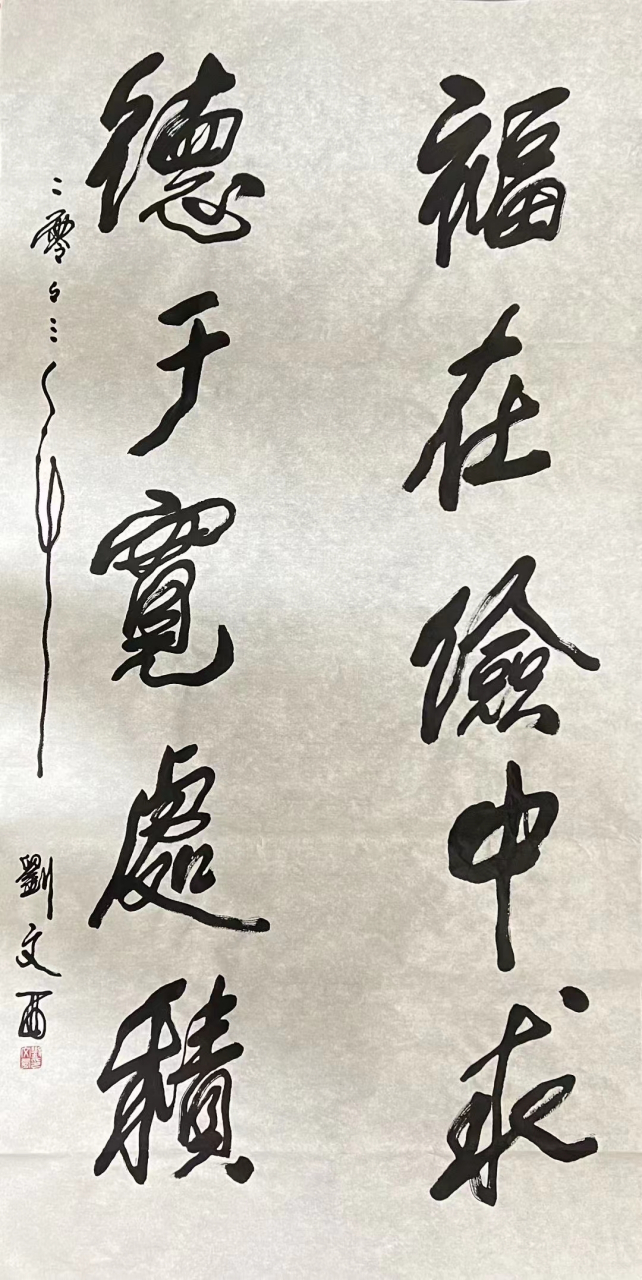 福在儉中求
德于寬處積
二零二三年
劉文西